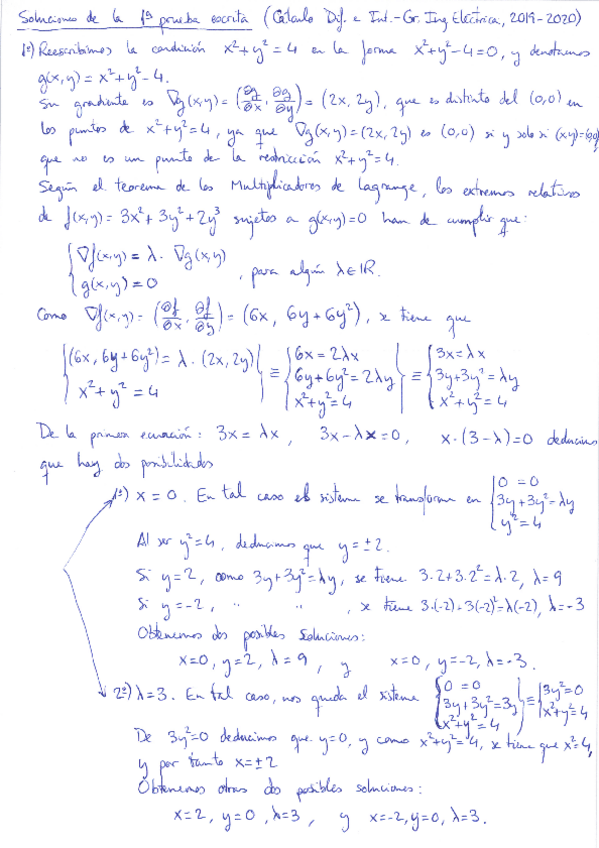 Soluciones de la 1ª prueba escrita (Cálculo Dif. e Int.-Gr. Ing Eléctrica, 2019-2020)
1º) Reescribimos la condición x²+y²=4 en la forma x²+y²-4=0, y denotemos
g(x,y) = x²+y²-4.
Su gradiente es ∇g(x,y) = (∂g/∂x, ∂g/∂y) = (2x, 2y), que es distinto del (0,0) en
los puntos de x²+y²=4, ya que ∇g(x,y)=(2x,2y) es (0,0) si y solo si (x,y)=(0,0),
que no es un punto de la restricción x²+y²=4.
Según el teorema de los Multiplicadores de Lagrange, los extremos relativos
de f(x,y) = 3x²+3y²+2y³ sujetos a g(x,y)=0 han de cumplir que:
{ ∇f(x,y) = λ· ∇g(x,y)
g(x,y) = 0 , para algún λ∈ℝ.
Como ∇f(x,y) = (∂f/∂x, ∂f/∂y) = (6x, 6y+6y²), se tiene que
{ (6x, 6y+6y²) = λ·(2x,2y) } ≡ { 6x = 2λx } ≡ { 3x=λx
x²+y² = 4 6y+6y² = 2λy 3y+3y² = λy
x²+y²=4 x²+y²=4
De la primera ecuación: 3x = λx, 3x-λx=0, x·(3-λ)=0 deducimos
que hay dos posibilidades
1ª) x = 0. En tal caso el sistema se transforma en { 0 = 0
3y+3y²=λy
y²=4
Al ser y²=4, deducimos que y=±2.
Si y=2, como 3y+3y²=λy, se tiene 3·2+3·2²=λ·2, λ=9
Si y=-2, " " , se tiene 3·(-2)+3(-2)²=λ(-2), λ=-3
Obtenemos dos posibles soluciones:
x=0, y=2, λ=9, y x=0, y=-2, λ=-3.
2ª) λ=3. En tal caso, nos queda el sistema { 0 = 0 } ≡ { 3y²=0
3y+3y²=3y x²+y²=4
x²+y²=4
De 3y²=0 deducimos que y=0, y como x²+y²=4, se tiene que x²=4,
y por tanto x=±2
Obtenemos otras dos posibles soluciones:
x=2, y=0, λ=3, y x=-2, y=0, λ=3.